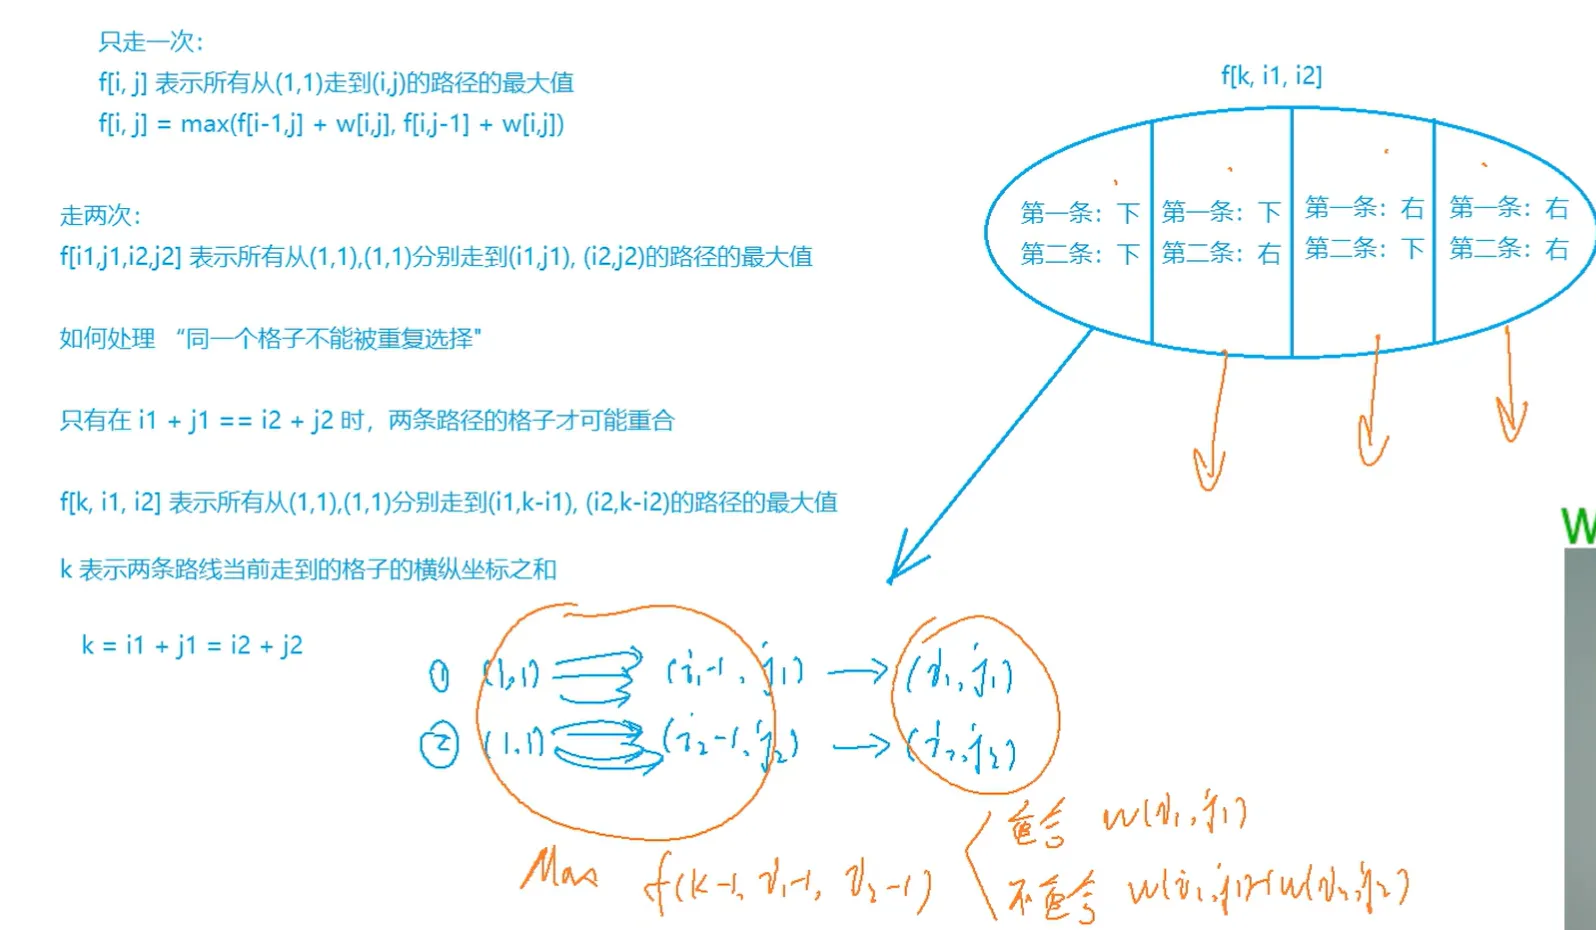 只走一次：
f[i, j] 表示所有从(1,1)走到(i,j)的路径的最大值
f[i, j] = max(f[i-1,j] + w[i,j], f[i,j-1] + w[i,j])
走两次：
f[i1,j1,i2,j2] 表示所有从(1,1),(1,1)分别走到(i1,j1), (i2,j2)的路径的最大值
如何处理 “同一个格子不能被重复选择"
只有在 i1 + j1 == i2 + j2 时，两条路径的格子才可能重合
f[k, i1, i2] 表示所有从(1,1),(1,1)分别走到(i1,k-i1), (i2,k-i2)的路径的最大值
k 表示两条路线当前走到的格子的横纵坐标之和
k = i1 + j1 = i2 + j2
f[k, i1, i2]
第一条：下 第一条：下 第一条：右 第一条：右
第二条：下 第二条：右 第二条：下 第二条：右
① (1,1) (i₁-1, j₁) (i₁, j₁)
② (1,1) (i₂-1, j₂) (i₂, j₂)
Max f(k-1, i₁-1, i₂-1)
w(i₁, j₁)
不 w(i₁, j₁)+w(i₂, j₂)
W